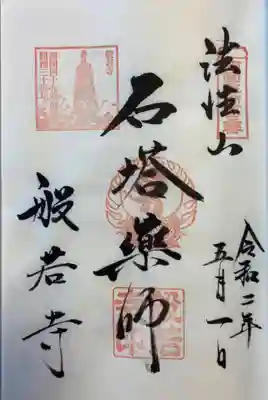 法性山
令和二年
五月一日
石塔藥師
般若寺